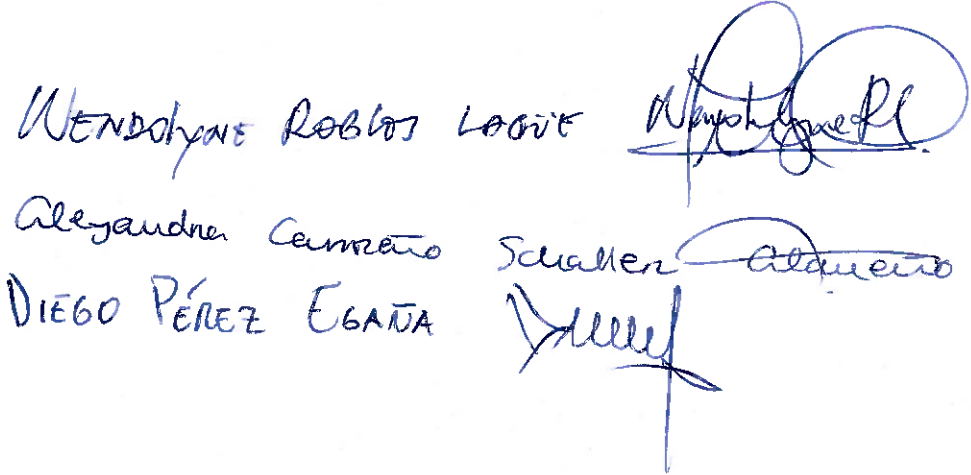 WENDOLYNE ROBLES LAGÜE Wendolyne RL.
Alejandra Carreño Schaller ACarreño
DIEGO PÉREZ EGAÑA